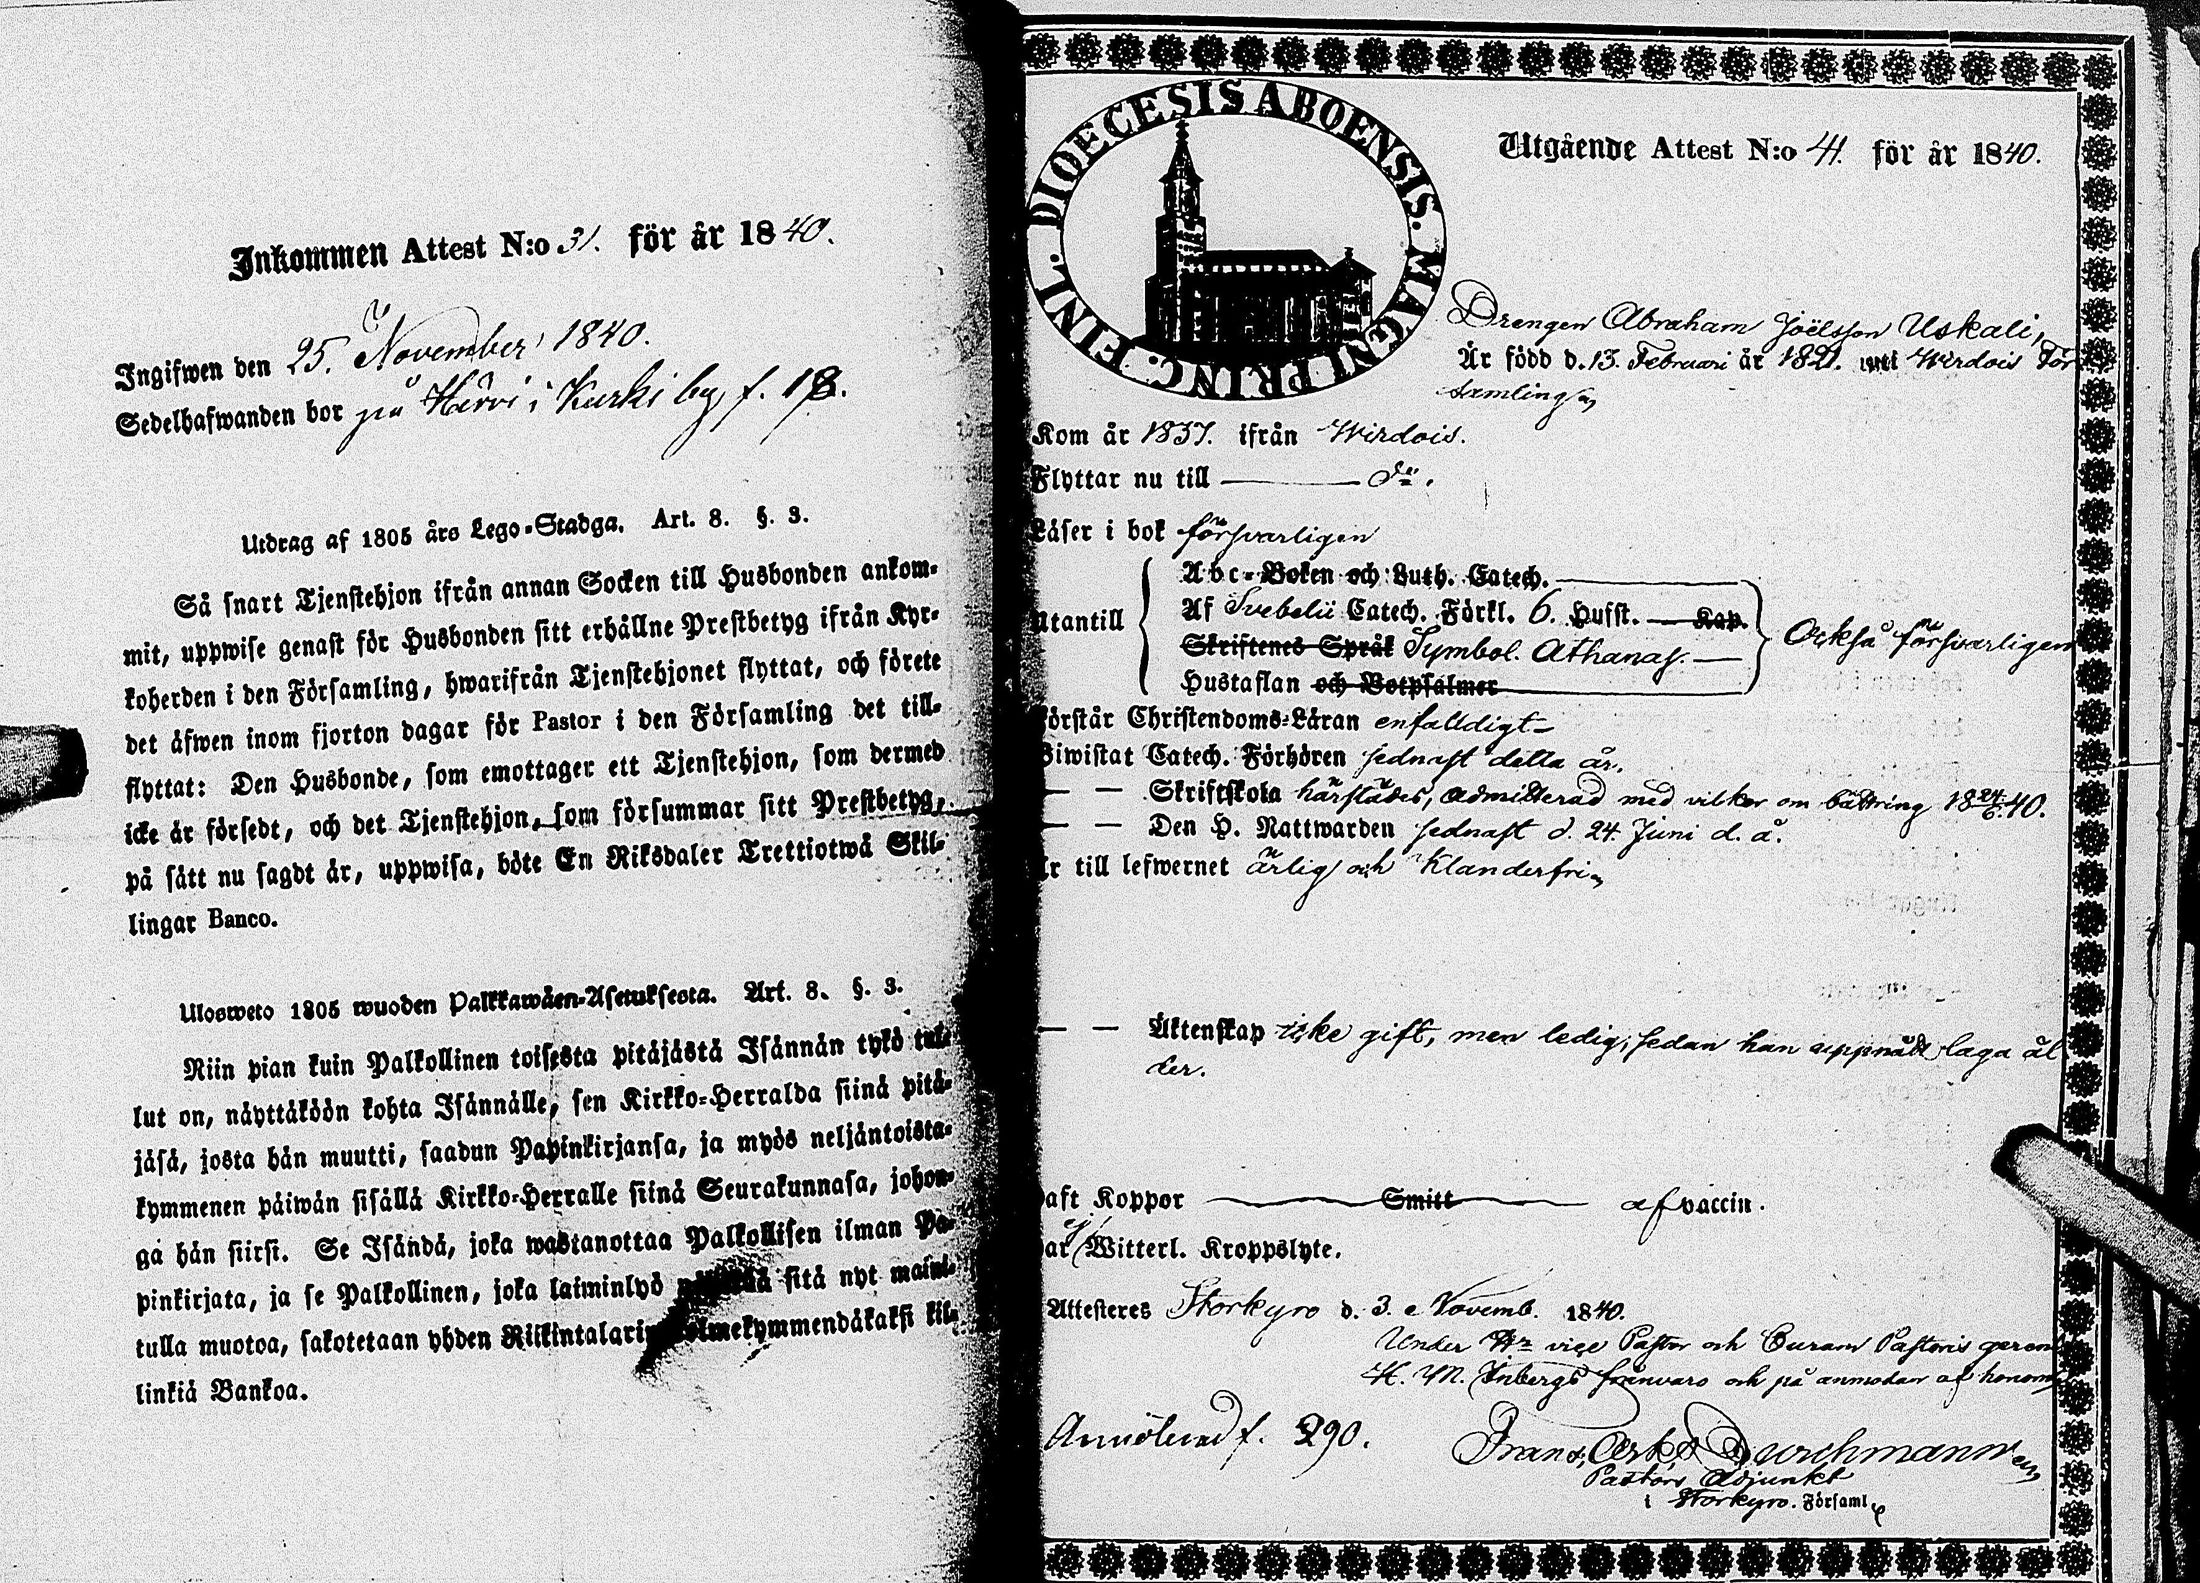 Inkommen Attest N:o 31. för år 1840.
Ingifwen den 25. November 1840.
Sedelhafwanden bor på Härvi i Kurki by, f. 18.
Utdrag af 1805 års Lego-Stadga. Art. 8. §. 3.
Så snart Tjenstehjon ifrån annan Socken till Husbonden ankom-
mit, uppwise genast för Husbonden sitt erhållne Prestbetyg ifrån Kyr-
koherden i den Församling, hwarifrån Tjenstehjonet flyttat, och förete
det äfwen inom fjorton dagar för Pastor i den Församling det till-
flyttat: Den Husbonde, som emottager ett Tjenstehjon, som dermed
icke är försedt, och det Tjenstehjon, som försummar sitt Prestbetyg,
på sätt nu sagdt är, uppwisa, böte En Riksdaler Trettiotwå Skil-
lingar Banco.
Ulosweto 1805 wuoden Palkkawäen-Asetuksesta. Art. 8. §. 3.
Niin pian kuin Palkollinen toisesta pitäjästä Isännän tykö tul-
lut on, näyttäköön kohta Isännälle, sen Kirkko-Herralda siinä pitä-
jäsä, josta hän muutti, saadun Papinkirjansa, ja myös neljäntoista-
kymmenen päiwän sisällä Kirkko-Herralle siinä Seurakunnasa, johon-
ga hän siirsi. Se Isändä, joka wastanottaa Palkollisen ilman Pa-
pinkirjata, ja se Palkollinen, joka laiminlyö sitä nyt maini-
tulla muotoa, sakotetaan yhden Riikintalarin kolmekymmendäkaksi kil-
linkiä Bankoa.
DIOECESIS ABOENSIS. MAGNI PRINC. FINL.
Utgående Attest N:o 41. för år 1840.
Drengen Abraham Joëlsson Uskali,
Är född d. 13. Februari år 1821. uti Wirdois För
samling
Kom år 1837. ifrån Wirdois.
Flyttar nu till ——— d:o.
Läser i bok försvarligen
Abc-Boken och Luth. Catech.
Af Svebelii Catech. Förkl. 6. Hufst. — Kap.
Utantill
Skriftenes Språk Symbol. Athanas. —
Också försvarligen
Hustaflan och Botpsalmer
Förstår Christendoms-Läran enfalldigt
Biwistat Catech. Förhören sednast detta år.
— — Skriftskola härstädes, admitterad med vilkor om bättring 18 24/6 40.
— — Den H. Nattwarden sednast d. 24. Juni d. å.
Är till lefwernet ärlig och klanderfri
— — Äktenskap icke gift, men ledig, sedan han uppnådt laga ål
der.
haft Koppor ——— Smitt ——— af vaccin.
har ej Witterl. Kroppslyte.
Attesteres Storkyro d. 3. Novemb. 1840.
Under Hr vice Pastor och Curam Pastoris gerens
H. M. Inbergs frånvaro och på anmodan af honom
Annoterad f. 290.
Frans Osk. Durchmann
Pastors Adjunkt
i Storkyro. Församl.